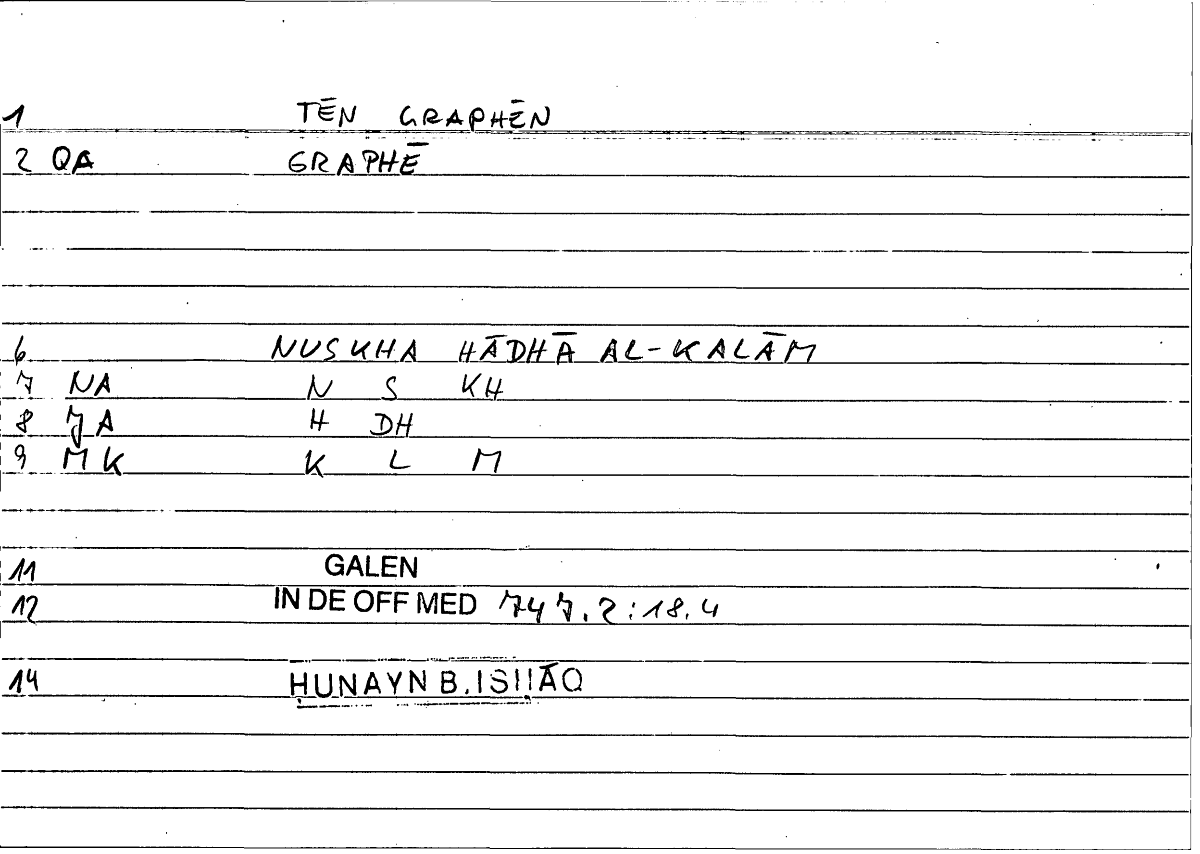 1 TĒN GRAPHĒN
2 QA GRAPHĒ
6 NUSKHA HĀDHĀ AL-KALĀM
7 NA N S KH
8 JA H DH
9 MK K L M
11 GALEN
12 IN DE OFF MED 747.2:18.4
14 ḤUNAYN B.ISḤĀQ